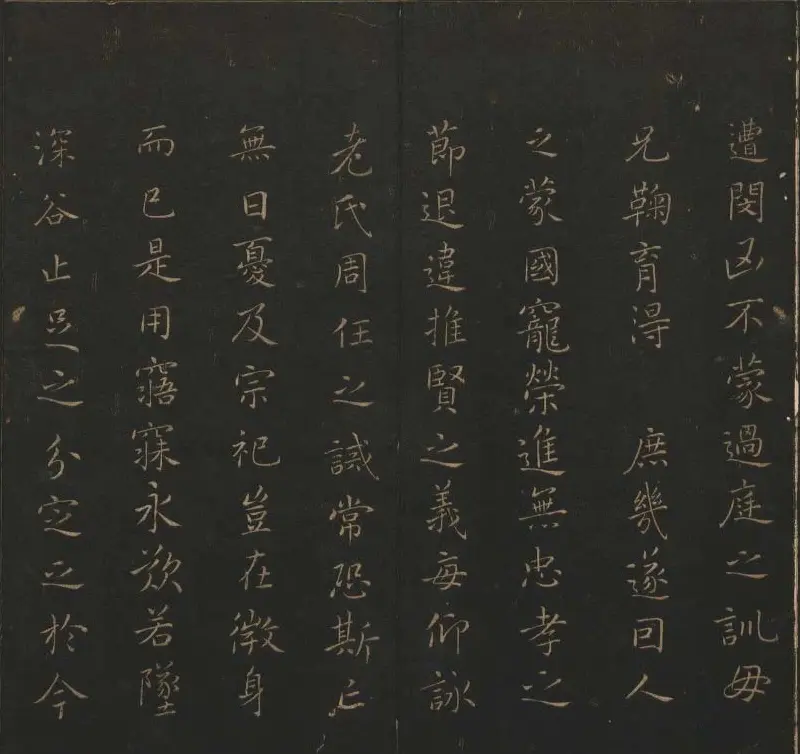 遭閔凶不蒙過庭之訓母
兄鞠育得 庶幾遂因人
之蒙國寵榮進無忠孝之
節退違推賢之義每仰詠
老氏周任之誡常恐斯亡
無日憂及宗祀豈在微身
而已是用寤寐永歎若墜
深谷止足之分定之於今